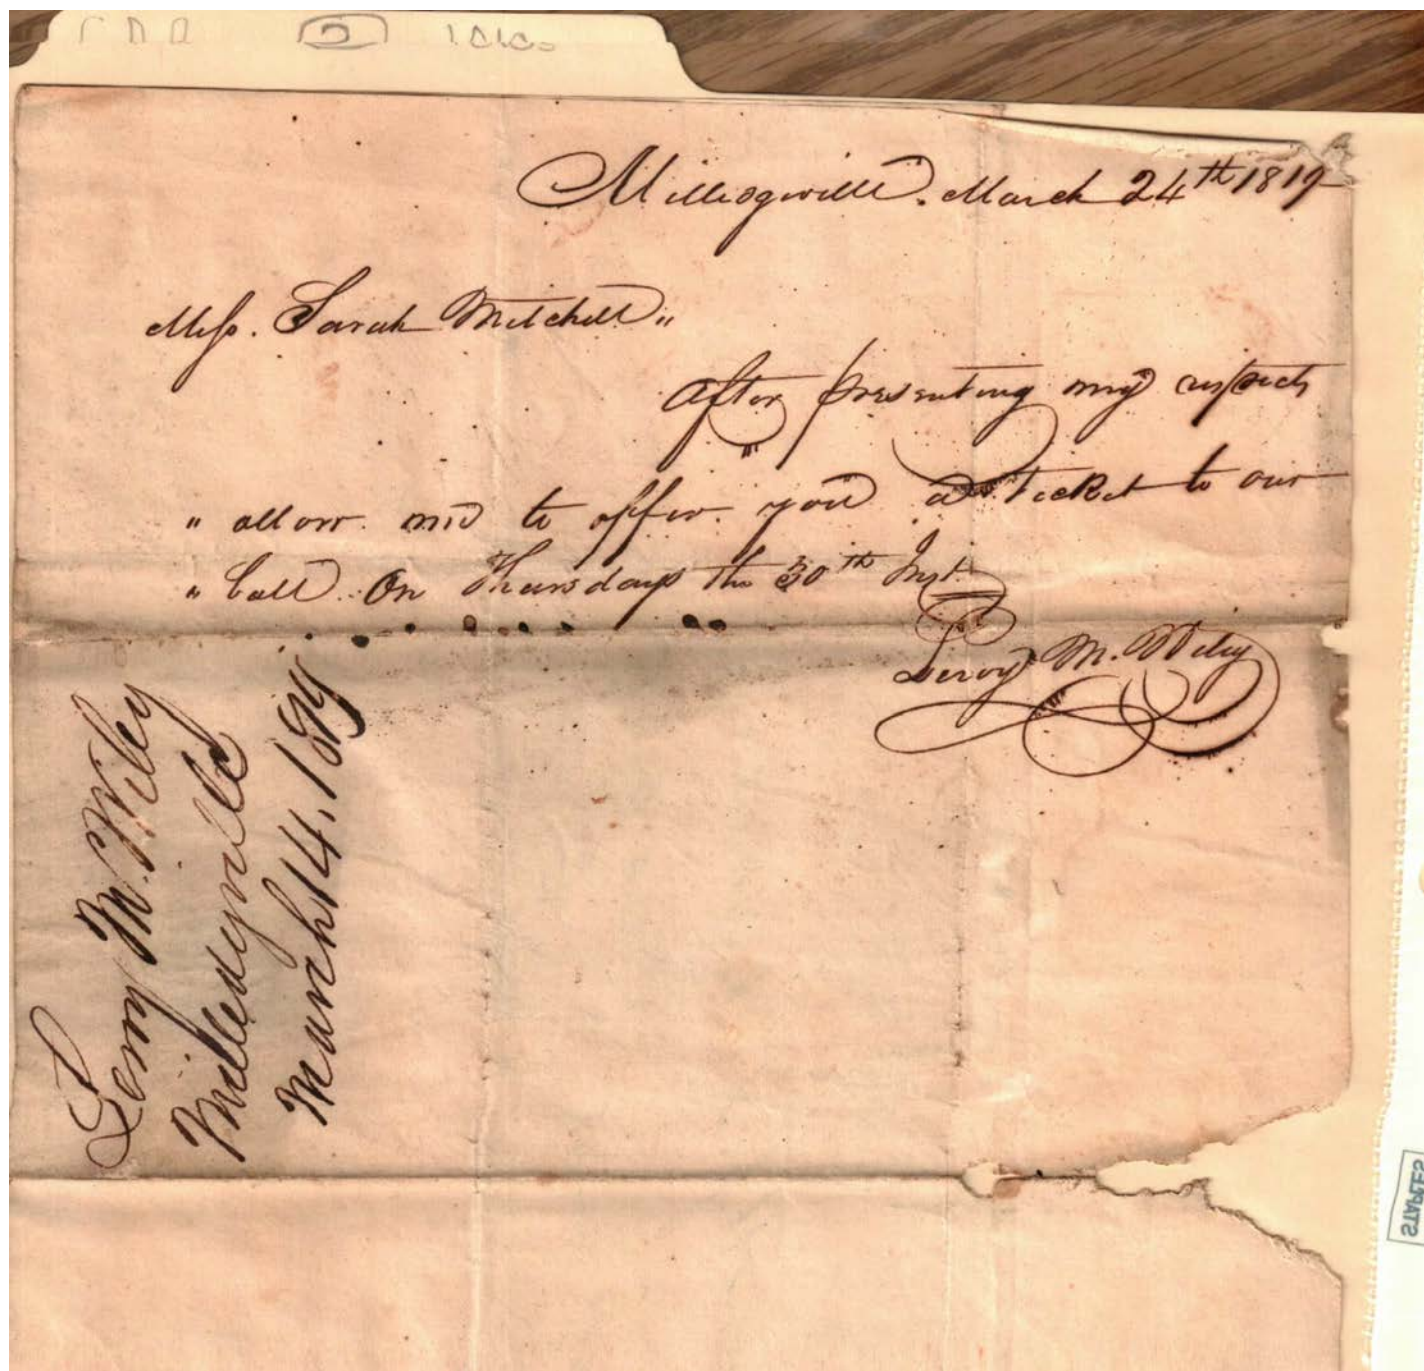 Milledgville. March 24th 1819
Miss. Sarah Mitchell "
After presenting my respects
" allow me to offer you a Ticket to our
" Ball On Thursday the 30th Inst.
Leroy M. Wiley
Leroy M. Wiley
Milledgville
March 14, 1819
STAPLES